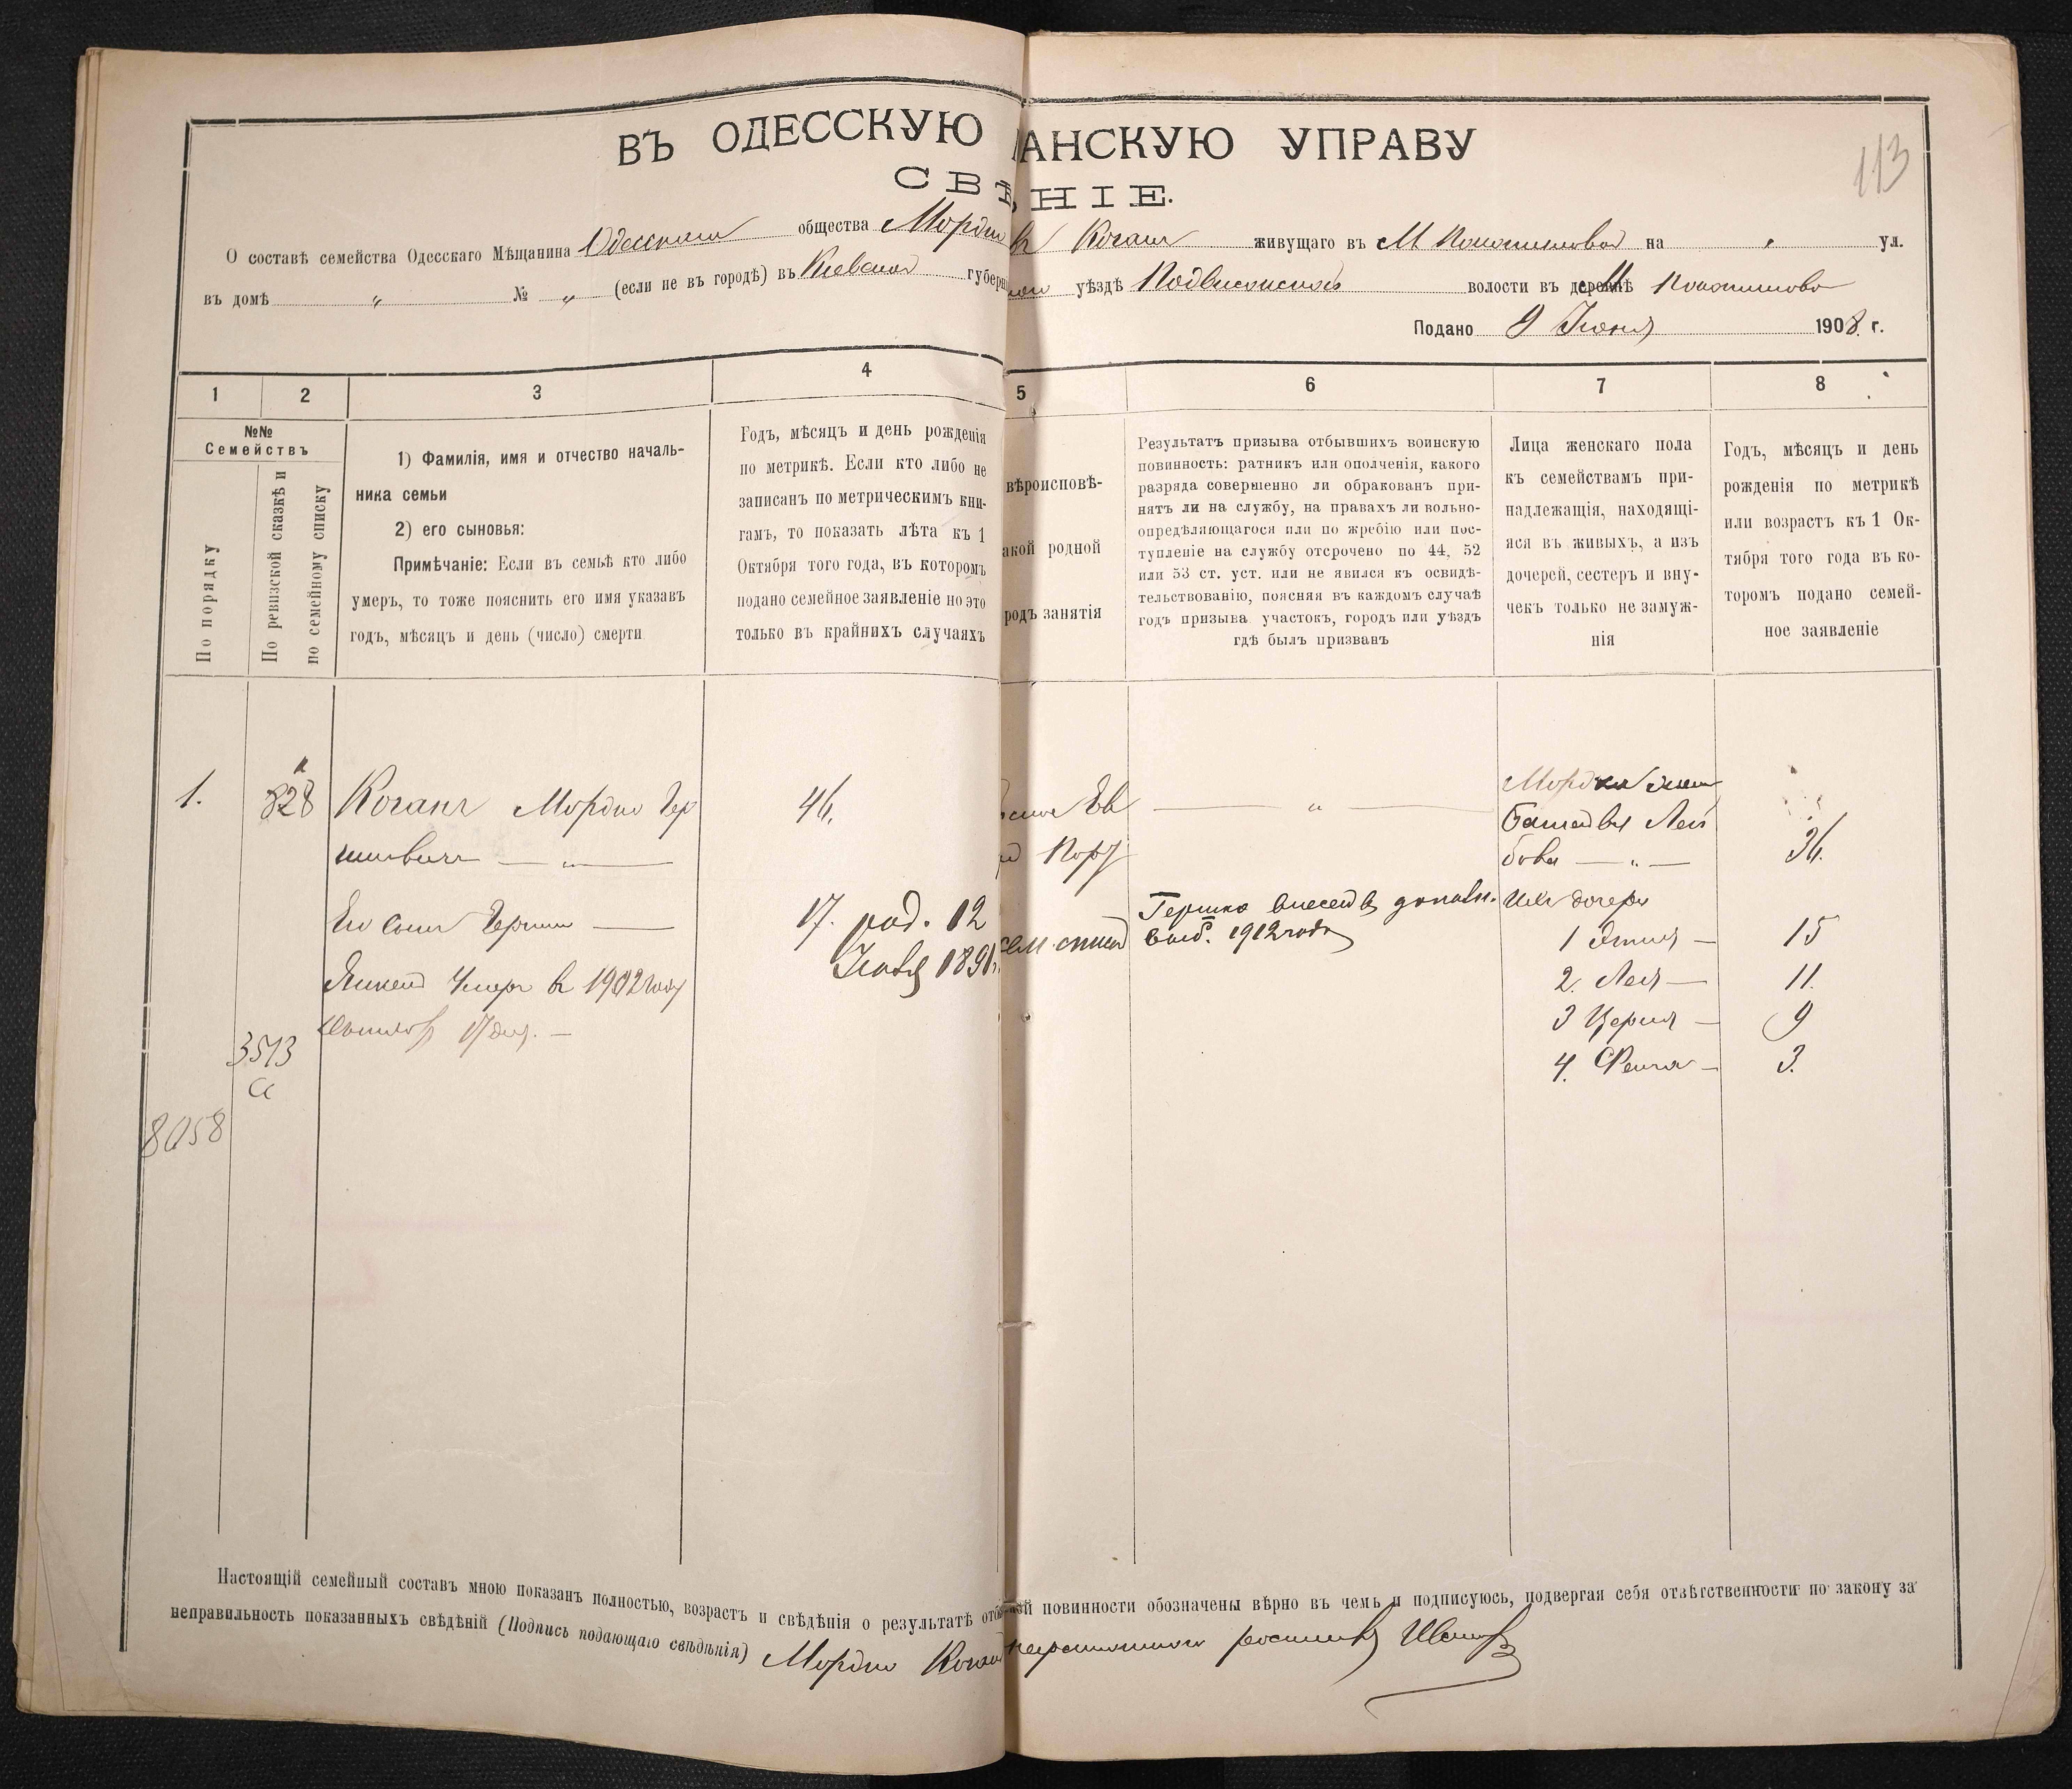 ВЪ ОДЕССКУЮ АНСКУЮ УПРАВУ
113
СВѢ НІЕ.
О составѣ семейства Одесскаго Мѣщанина Одесскаго общества Мордко Коганъ живущаго въ М на „ ул.
въ домѣ „ № „ (если не въ городѣ) въ Кіевской губерн уѣздѣ Подвысоцкой волости въ деревнѣ
Подано 9 Іюня 1908 г.
1 2 3 4 5 6 7 8
№№
Семействъ
По порядку
По ревизской сказкѣ и
по семейному списку
1) Фамилія, имя и отчество началь-
ника семьи
2) его сыновья:
Примѣчаніе: Если въ семьѣ кто либо
умеръ, то тоже пояснить его имя указавъ
годъ, мѣсяцъ и день (число) смерти
Годъ, мѣсяцъ и день рожденія
по метрикѣ. Если кто либо не
записанъ по метрическимъ кни-
гамъ, то показать лѣта къ 1
Октября того года, въ которомъ
подано семейное заявленіе но это
только въ крайнихъ случаяхъ
вѣроисповѣ-
акой родной
родъ занятія
Результатъ призыва отбывшихъ воинскую
повинность: ратникъ или ополченія, какого
разряда совершенно ли обракованъ при-
нятъ ли на службу, на правахъ ли вольно-
опредѣляющагося или по жребію или пос-
тупленіе на службу отсрочено по 44, 52
или 53 ст. уст. или не явился къ освидѣ-
тельствованію, поясняя въ каждомъ случаѣ
годъ призыва участокъ, городъ или уѣздъ
гдѣ былъ призванъ
Лица женскаго пола
къ семействамъ при-
надлежащія, находящі-
яся въ живыхъ, а изъ
дочерей, сестеръ и вну-
чекъ только не замуж-
нія
Годъ, мѣсяцъ и день
рожденія по метрикѣ
или возрастъ къ 1 Ок-
тября того года въ ко-
торомъ подано семей-
ное заявленіе
1. 828 Коганъ Мордко Гер
шковичъ — „ —
46.
Ев
— „ —
Мордка жена
Башейва Лей
бова — „ —
36.
Его сынъ Гершко —
17. род. 12
Ноября 1891г.
Гершко внесенъ
1912 года
Ихъ дочери
1 Этля — 15
Янкель Умеръ въ 1902 году
2. Лея — 11.
17 дня. —
3 Церля — 9
4. Фейга — 3.
3513
а
8058
Настоящій семейный составъ мною показанъ полностью, возрастъ и свѣдѣнія о результатѣ отб ой повинности обозначены вѣрно въ чемъ и подписуюсь, подвергая себя отвѣтственности по закону за
неправильность показанныхъ свѣдѣній (Подпись подающаго свѣдѣнія) Мордко Коганъ